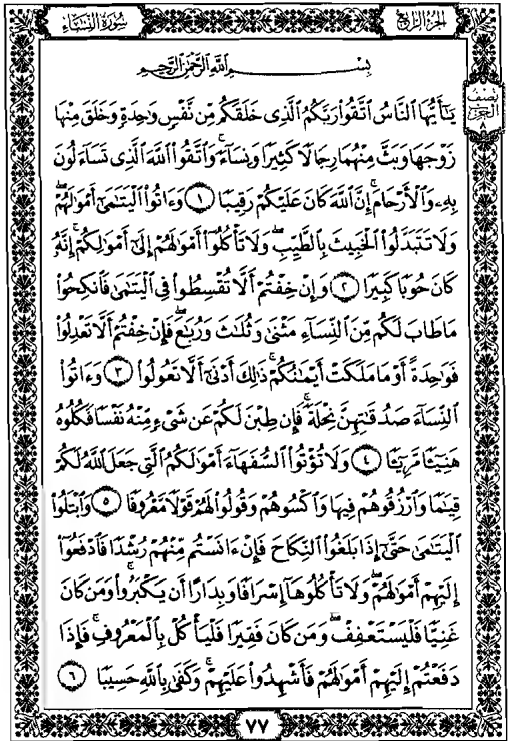 سورة النساء
الجزء الرابع
بِسْمِ اللَّهِ الرَّحْمَٰنِ الرَّحِيمِ
نصف
الحزب
٨
يَٰٓأَيُّهَا النَّاسُ اتَّقُوا۟ رَبَّكُمُ الَّذِى خَلَقَكُم مِّن نَّفْسٍ وَٰحِدَةٍ وَخَلَقَ مِنْهَا
زَوْجَهَا وَبَثَّ مِنْهُمَا رِجَالًا كَثِيرًا وَنِسَآءً ۚ وَاتَّقُوا۟ اللَّهَ الَّذِى تَسَآءَلُونَ
بِهِۦ وَالْأَرْحَامَ ۚ إِنَّ اللَّهَ كَانَ عَلَيْكُمْ رَقِيبًا ١ وَءَاتُوا۟ الْيَتَٰمَىٰٓ أَمْوَٰلَهُمْ ۖ
وَلَا تَتَبَدَّلُوا۟ الْخَبِيثَ بِالطَّيِّبِ ۖ وَلَا تَأْكُلُوٓا۟ أَمْوَٰلَهُمْ إِلَىٰٓ أَمْوَٰلِكُمْ ۚ إِنَّهُۥ
كَانَ حُوبًا كَبِيرًا ٢ وَإِنْ خِفْتُمْ أَلَّا تُقْسِطُوا۟ فِى الْيَتَٰمَىٰ فَانكِحُوا۟
مَا طَابَ لَكُم مِّنَ النِّسَآءِ مَثْنَىٰ وَثُلَٰثَ وَرُبَٰعَ ۖ فَإِنْ خِفْتُمْ أَلَّا تَعْدِلُوا۟
فَوَٰحِدَةً أَوْ مَا مَلَكَتْ أَيْمَٰنُكُمْ ۚ ذَٰلِكَ أَدْنَىٰٓ أَلَّا تَعُولُوا۟ ٣ وَءَاتُوا۟
النِّسَآءَ صَدُقَٰتِهِنَّ نِحْلَةً ۚ فَإِن طِبْنَ لَكُمْ عَن شَىْءٍ مِّنْهُ نَفْسًا فَكُلُوهُ
هَنِيٓـًٔا مَّرِيٓـًٔا ٤ وَلَا تُؤْتُوا۟ السُّفَهَآءَ أَمْوَٰلَكُمُ الَّتِى جَعَلَ اللَّهُ لَكُمْ
قِيَٰمًا وَارْزُقُوهُمْ فِيهَا وَاكْسُوهُمْ وَقُولُوا۟ لَهُمْ قَوْلًا مَّعْرُوفًا ٥ وَابْتَلُوا۟
الْيَتَٰمَىٰ حَتَّىٰٓ إِذَا بَلَغُوا۟ النِّكَاحَ فَإِنْ ءَانَسْتُم مِّنْهُمْ رُشْدًا فَادْفَعُوٓا۟
إِلَيْهِمْ أَمْوَٰلَهُمْ ۖ وَلَا تَأْكُلُوهَآ إِسْرَافًا وَبِدَارًا أَن يَكْبَرُوا۟ ۚ وَمَن كَانَ
غَنِيًّا فَلْيَسْتَعْفِفْ ۖ وَمَن كَانَ فَقِيرًا فَلْيَأْكُلْ بِالْمَعْرُوفِ ۚ فَإِذَا
دَفَعْتُمْ إِلَيْهِمْ أَمْوَٰلَهُمْ فَأَشْهِدُوا۟ عَلَيْهِمْ ۚ وَكَفَىٰ بِاللَّهِ حَسِيبًا ٦
٧٧